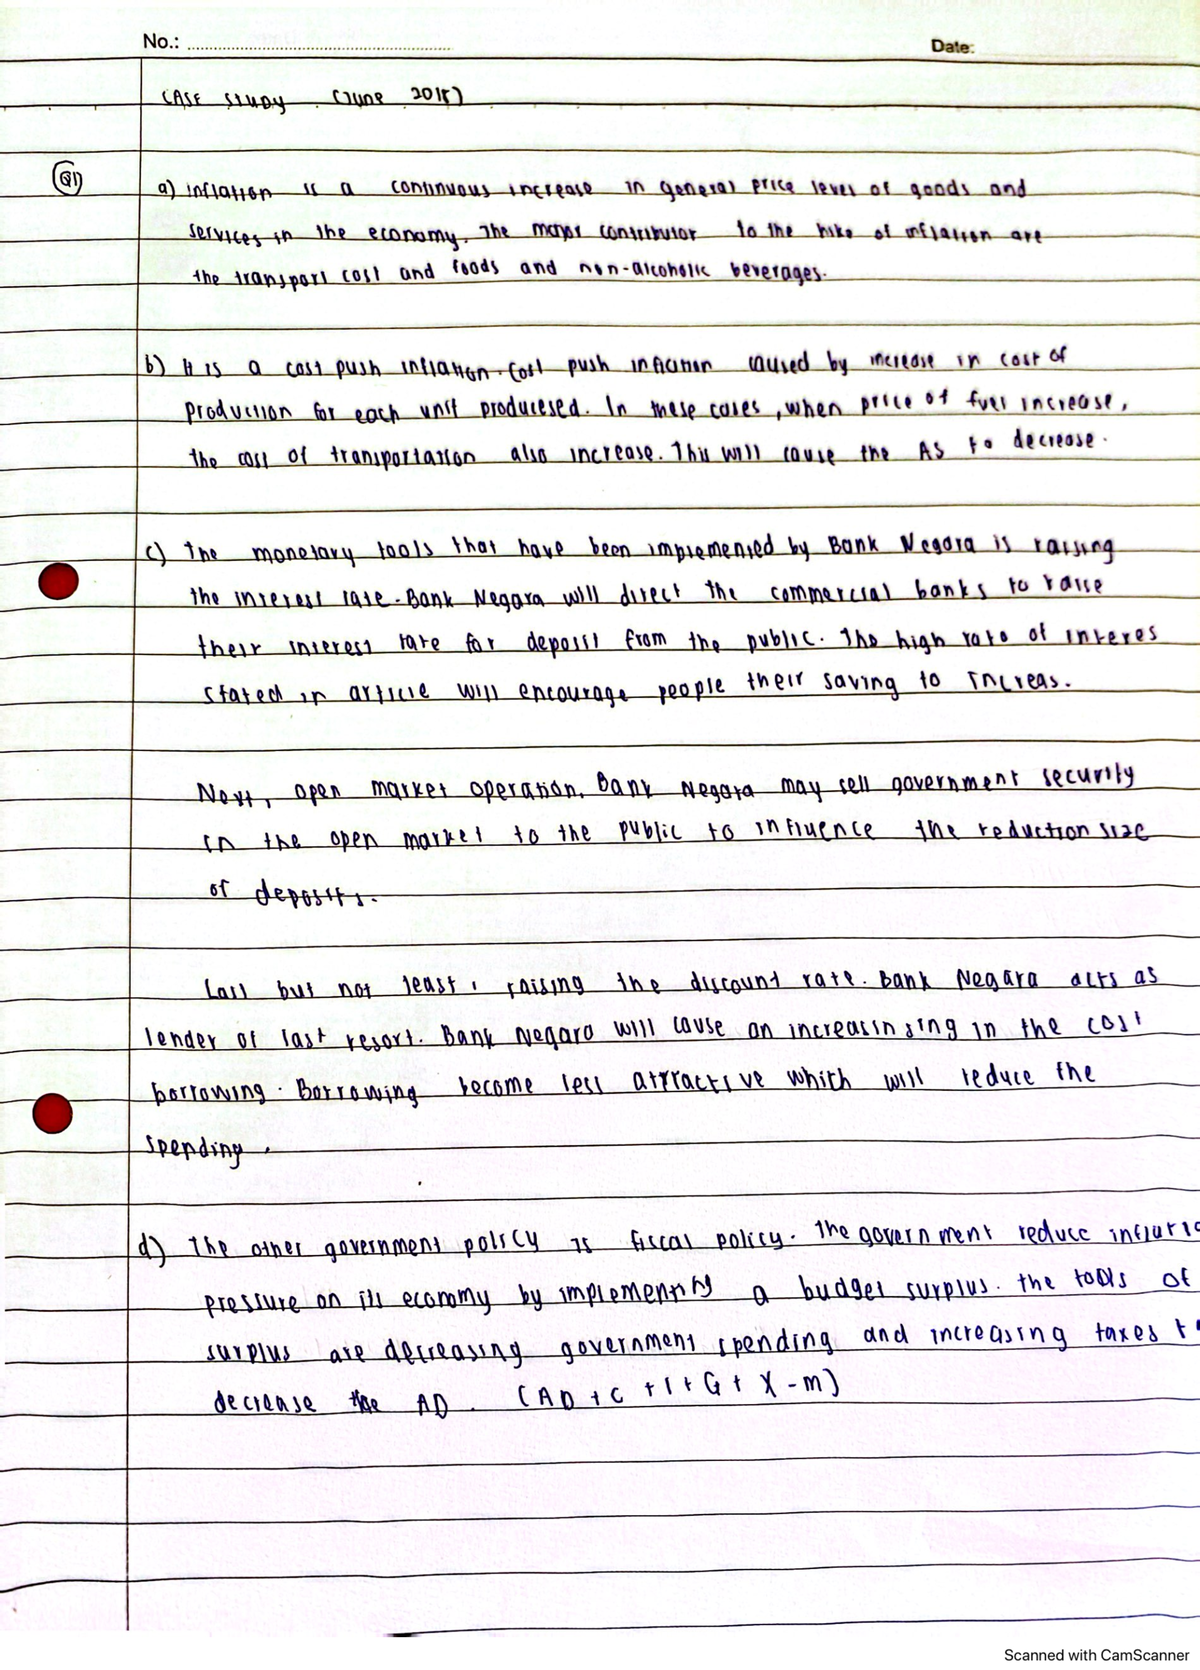 No.:
Date:
CASE STUDY (June 2018)
Q1)
a) inflation is a continuous increase in general price level of goods and
services in the economy. The major contributor to the hike of inflation are
the transport cost and foods and non-alcoholic beverages.
b) It is a cost push inflation. Cost push inflation caused by increase in cost of
production for each unit producesed. In these cases, when price of fuel increase,
the cost of transportation also increase. This will cause the AS to decrease.
c) The monetary tools that have been implemented by Bank Negara is raising
the interest rate. Bank Negara will direct the commercial banks to raise
their interest rate for deposit from the public. The high rate of interes
stated in article will encourage people their saving to increas.
Next, open market operation. Bank Negara may sell government security
in the open market to the public to influence the reduction size
of deposits.
Last but not least, raising the discount rate. Bank Negara acts as
lender of last resort. Bank Negara will cause an increasinsing in the cost
borrowing. Borrowing become less attractive which will reduce the
spending.
d) The other government policy is fiscal policy. The government reduce
pressure on its economy by implementing a budget surplus. the tools of
surplus are decreasing government spending and increasing taxes
decrease the AD. (AD + C + I + G + X - M)
Scanned with CamScanner